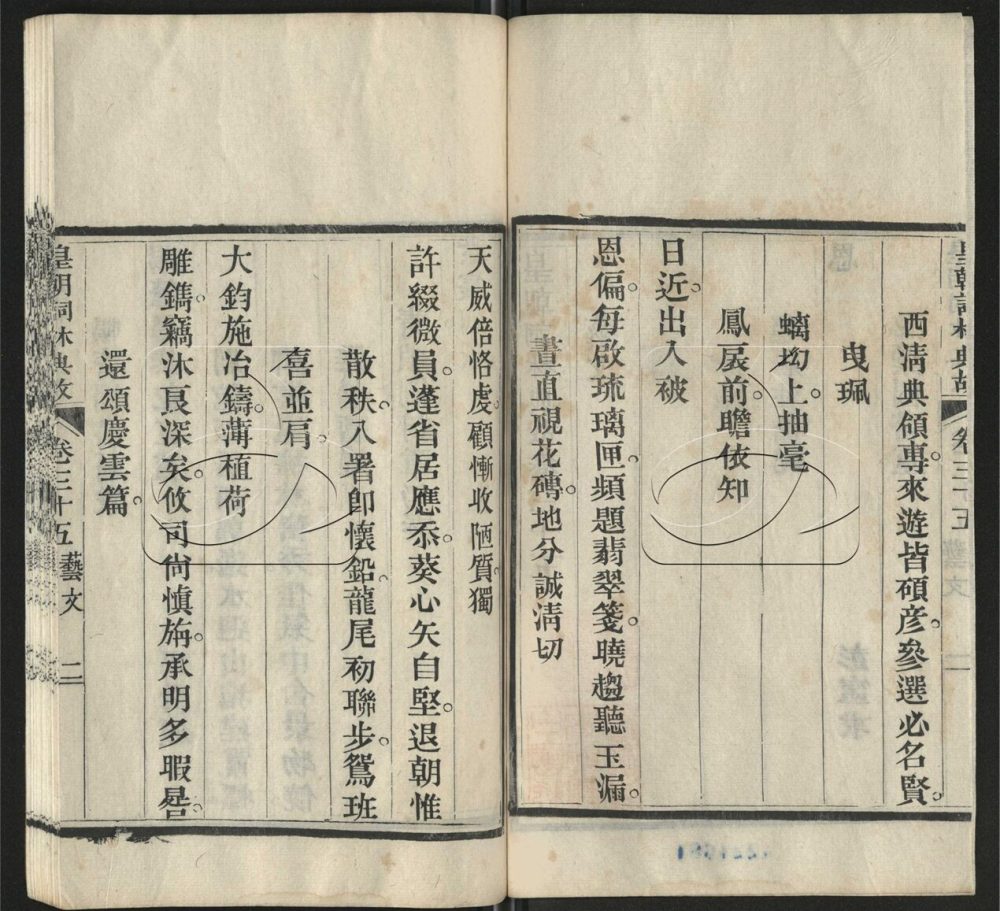 西淸典領專來遊皆碩彥參選必名賢
曳珮
螭坳上抽毫
鳳扆前瞻依知
日近出入被
恩偏每啟琉璃匣頻題翡翠箋曉趨聽玉漏
晝直視花磚地分誠淸切
天威倍恪虔顧慚收陋質獨
許綴微員蓬省居應忝葵心矢自堅退朝惟
散秩入署卽懷鉛龍尾初聯步鴛班
喜並肩
大鈞施冶鑄薄植荷
雕鐫竊沐艮深矣攸司尙愼旃承明多暇晷
還頌慶雲篇
皇朝詞林典故 卷三十五 藝文 二